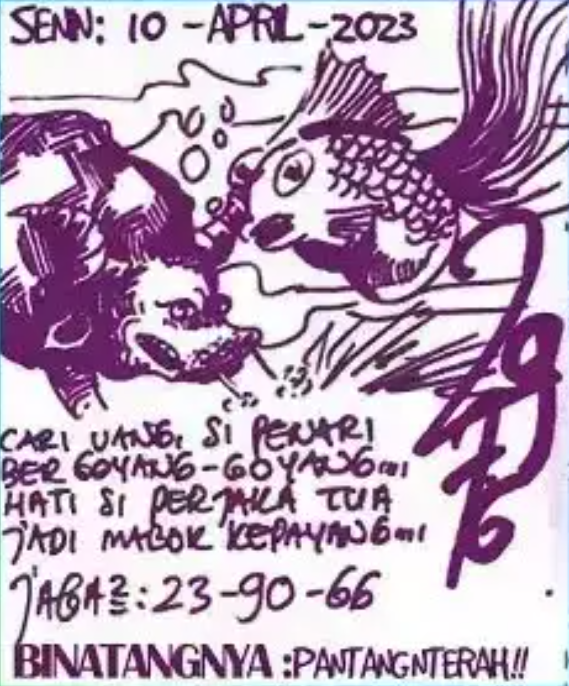 SENN: 10 - APRIL - 2023
CARI UANG, SI PENARI
BERGOYANG-GOYANG...
HATI SI PERJAKA TUA
JADI MABOK KEPAYANG...
JAGA2: 23-90-66
BINATANGNYA : PANTANGNTERAH!!